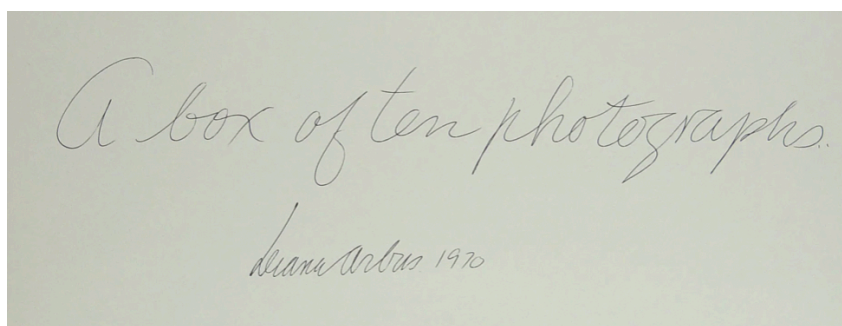 A box of ten photographs.
diane arbus 1970